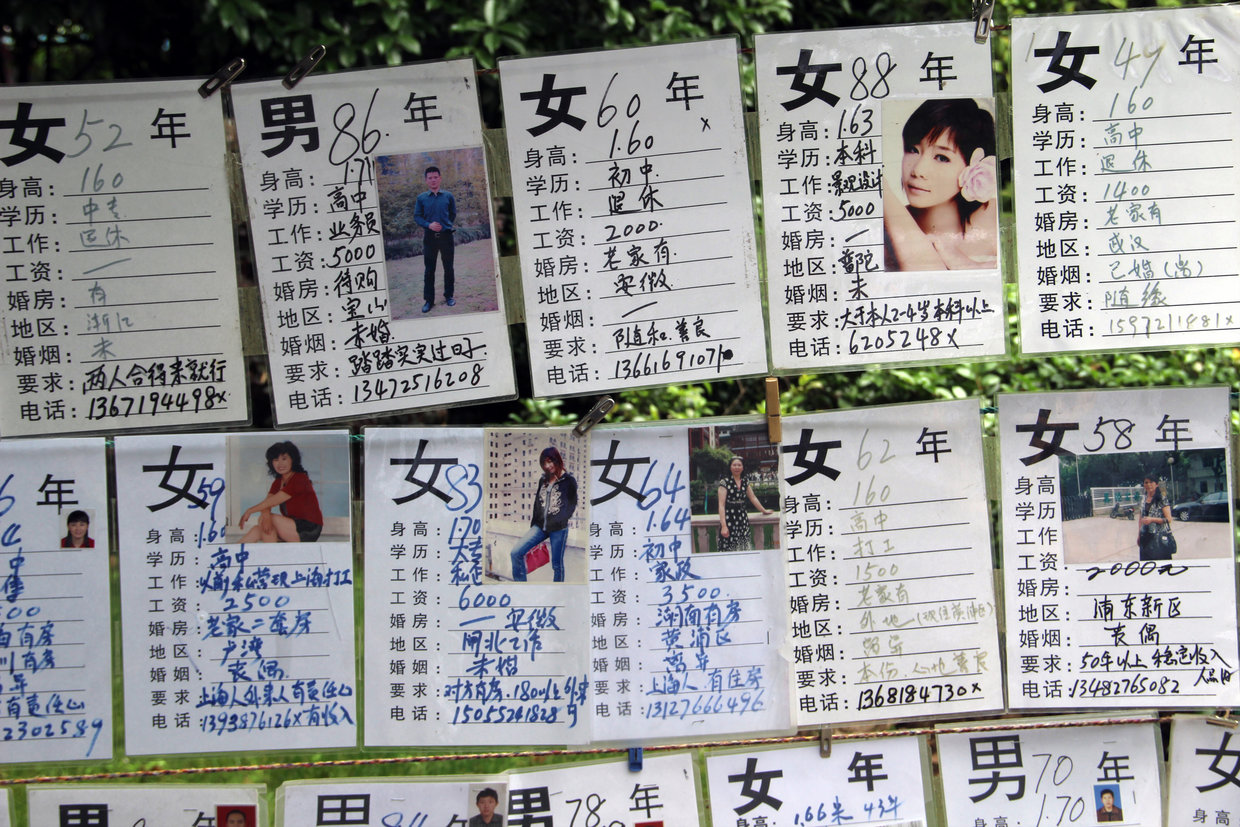 女 52 年
身高： 160
学历： 中专
工作： 退休
工资： 一
婚房： 有
地区： 浙江
婚烟： 未
要求： 两人合得来就行
电话： 1367194498x
男 86 年
身高： 1.71
学历： 高中
工作： 业务员
工资： 5000
婚房： 待购
地区： 宝山
婚烟： 未婚
要求： 踏踏实实过日子
电话： 13472516208
女 60 年
身高： 1.60
学历： 初中
工作： 退休
工资： 2000
婚房： 老家有
地区： 安徽
婚烟： 一
要求： 随和.善良
电话： 1366169107
女 88 年
身高： 1.63
学历： 本科
工作： 景观设计
工资： 5000
婚房： 一
地区： 普陀
婚烟： 未
要求： 大于本人2-4岁本科以上
电话： 6205248x
女 47 年
身高： 160
学历： 高中
工作： 退休
工资： 1400
婚房： 老家有
地区： 武汉
婚烟： 已婚(离)
要求： 随缘
电话： 1597211481x
年
中
有房
有房
有责任心
2302589
女 59
身高： 1.60
学历： 高中
工作： 以前私营现上海打工
工资： 2500
婚房： 老家二套房
地区： 卢湾
婚烟： 丧偶
要求： 上海人外来人有责任心
电话： 1393876126x有收入
女 83
身高： 170
学历： 大专
工作： 私企
工资： 6000
婚房： 一 安徽
地区： 闸北工作
婚姻： 未婚
要求： 对方有房.180以上外来
电话： 15055241828 可
女 64
身高： 1.64
学历： 初中
工作： 家政
工资： 3500
婚房： 湖南有房
地区： 黄浦区
婚烟： 离异
要求： 上海人 有住房
电话： 13127666496
女 62 年
身高： 160
学历： 高中
工作： 打工
工资： 1500
婚房： 老家有
地区： 外地
婚烟： 离异
要求： 本份、心地善良
电话： 1368184730x
女 58 年
身高
学历
工作
工资 2000元
婚房：
地区： 浦东新区
婚烟： 丧偶
要求： 50年以上 稳定收入
电话： 13482765082 人品好
男 年
男
男 78. 年
女 年
1.66米 43年
男 70 年
身高： 1.70
女